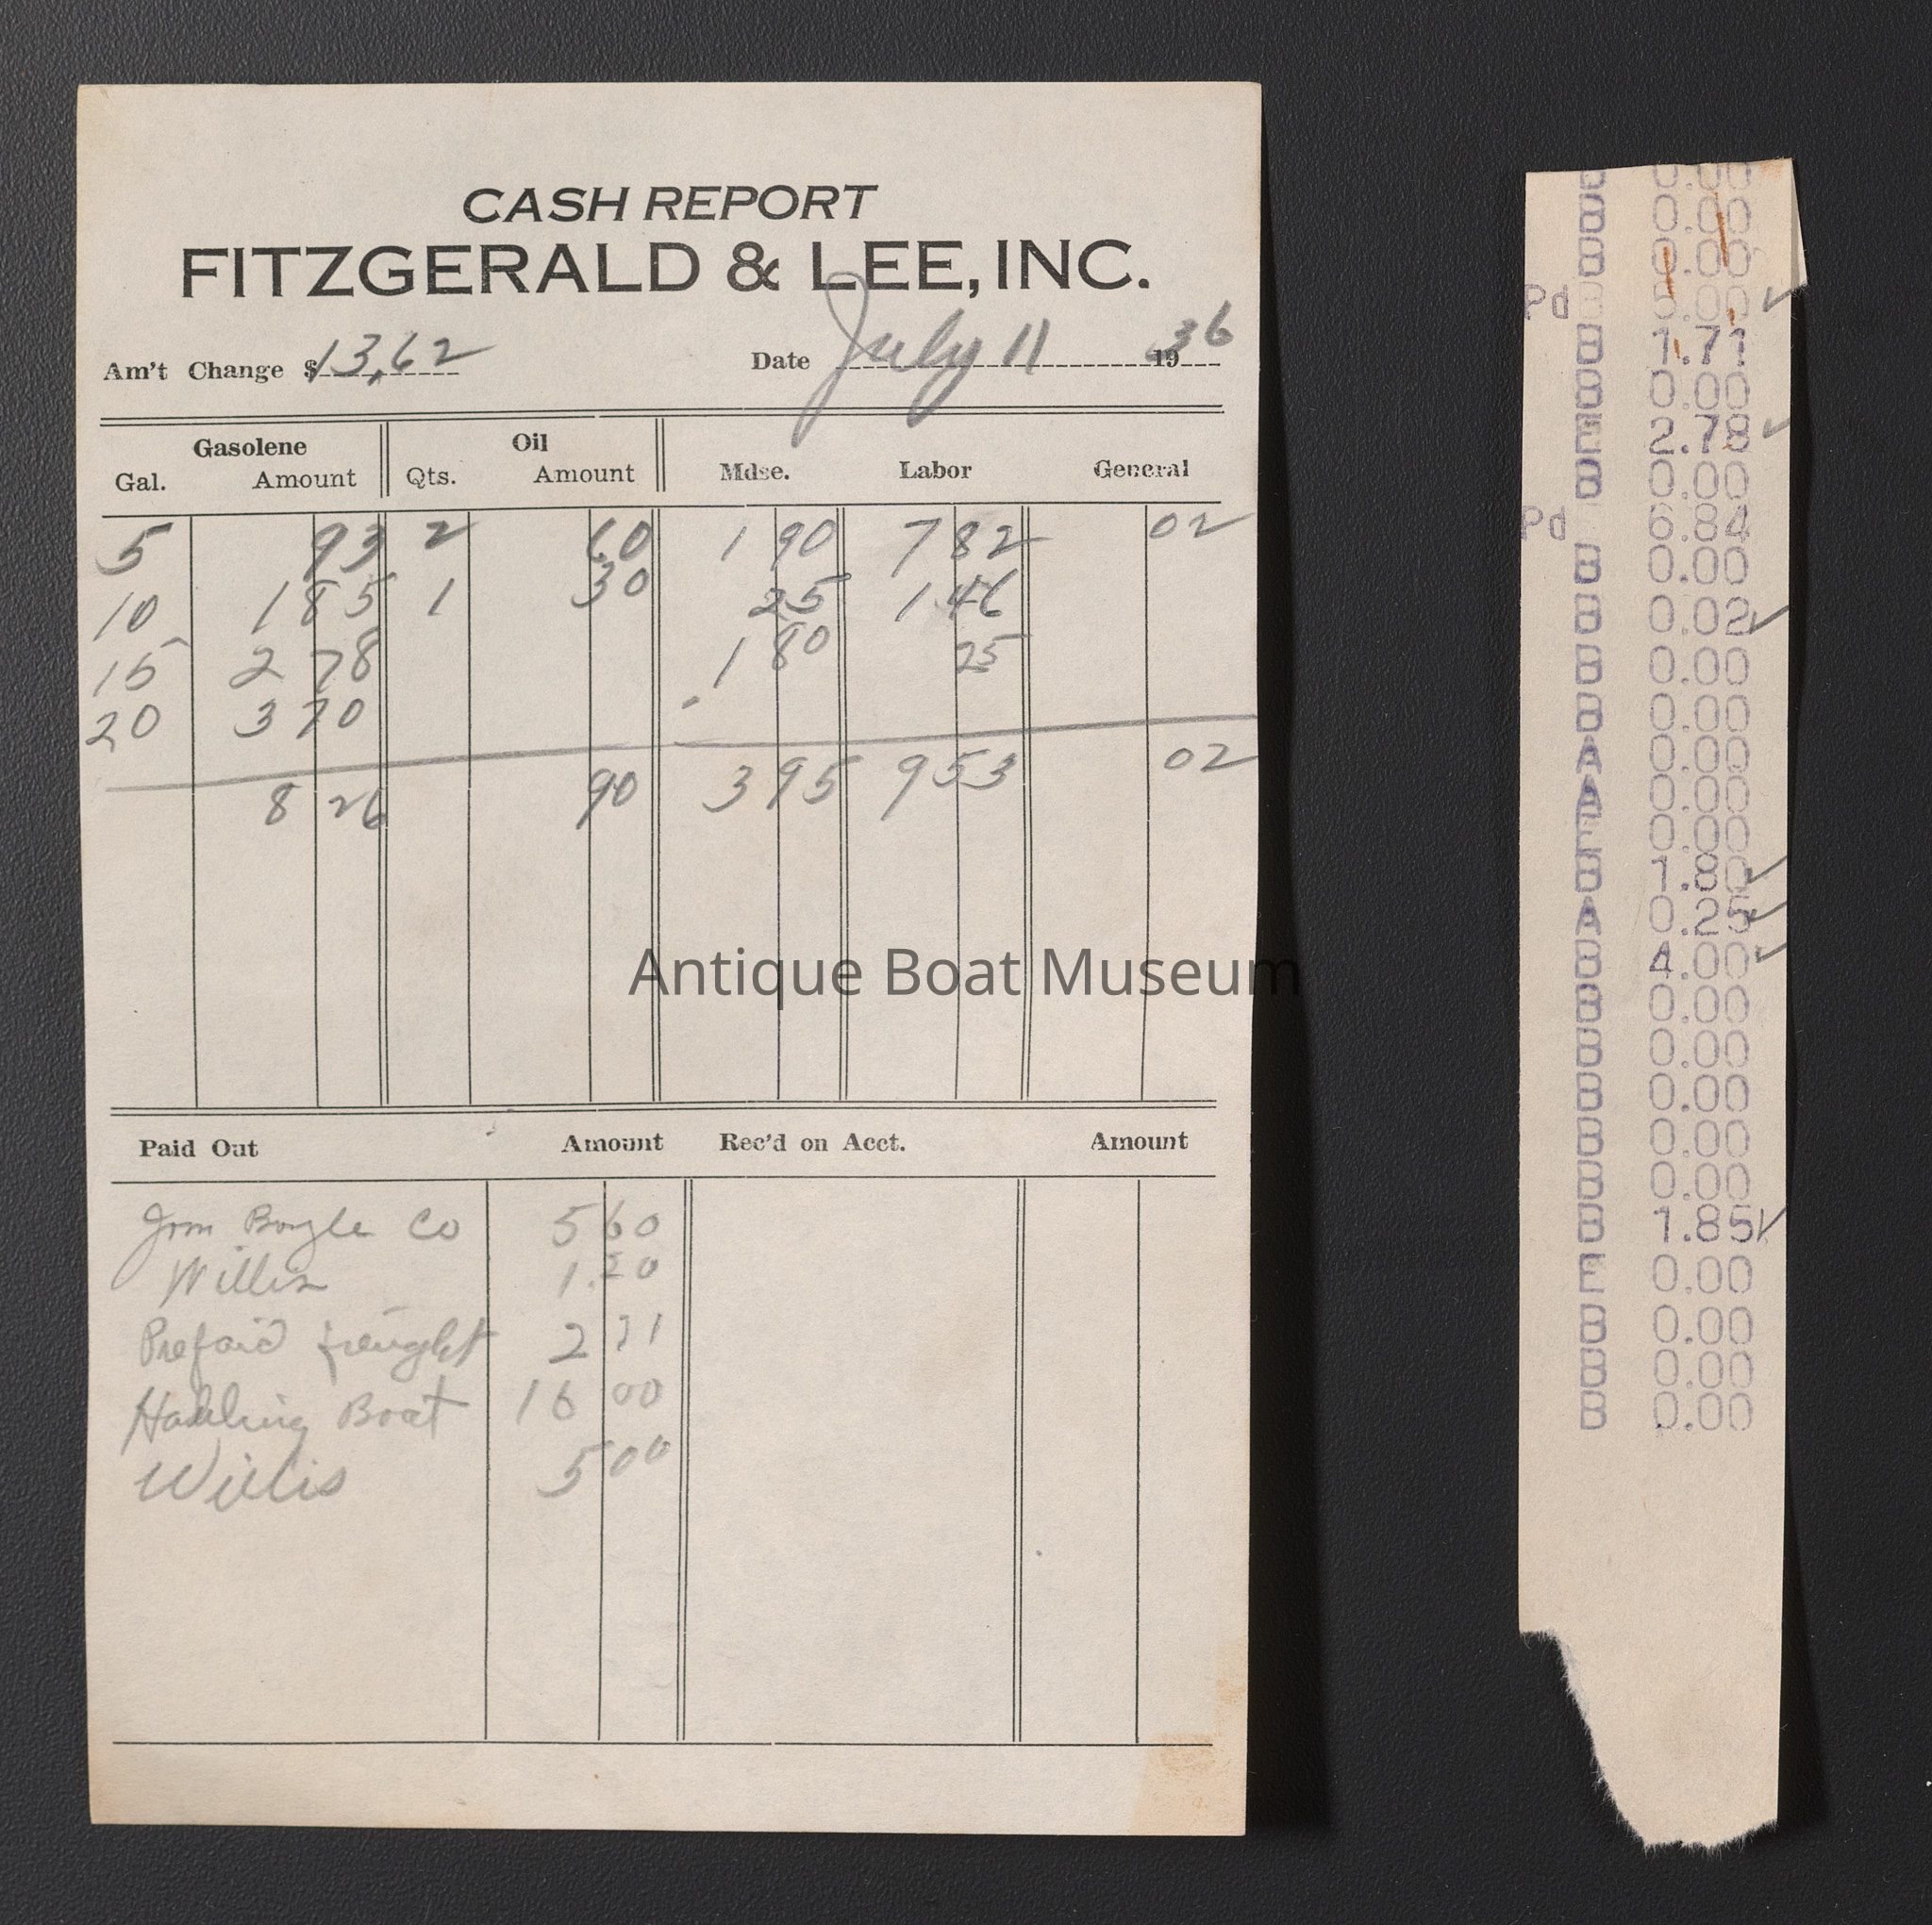 CASH REPORT
FITZGERALD & LEE, INC.
Am't Change $13.62 Date July 11 1936
Gasolene Oil
Gal. Amount Qts. Amount Mdse. Labor General
5 93 2 60 1 90 7 82 02
10 1 85 1 30 25 1 46
15 2 78 1 80 25
20 3 70
8 26 90 3 95 9 53 02
Antique Boat Museum
Paid Out Amount Rec'd on Acct. Amount
Jim Boyle Co 5 60
Willis 1.20
Prefaid freught 2 71
Hauling Boat 16 00
Willis 5 00
0.00
B 0.00
B 0.00
Pd 0.00
B 1.71
B 0.00
E 2.78
B 0.00
Pd 6.84
B 0.00
B 0.02
B 0.00
B 0.00
A 0.00
A 0.00
E 0.00
B 1.80
A 0.25
B 4.00
B 0.00
B 0.00
B 0.00
B 0.00
B 0.00
B 1.85
E 0.00
B 0.00
B 0.00
B 0.00